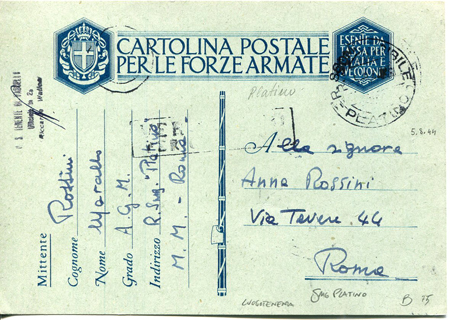 CARTOLINA POSTALE
PER LE FORZE ARMATE
ESENTE DA
TASSA PER
ITALIA E
COLONIE
PLATINO
Platino
5.8.44
Mittente
Cognome Rossini
Nome
Grado A.G.M.
Indirizzo R. Smg. "Platino"
M.M. - Roma
Alla signora
Anna Rossini
Via Tevere. 44
Roma
SMG PLATINO
B 75